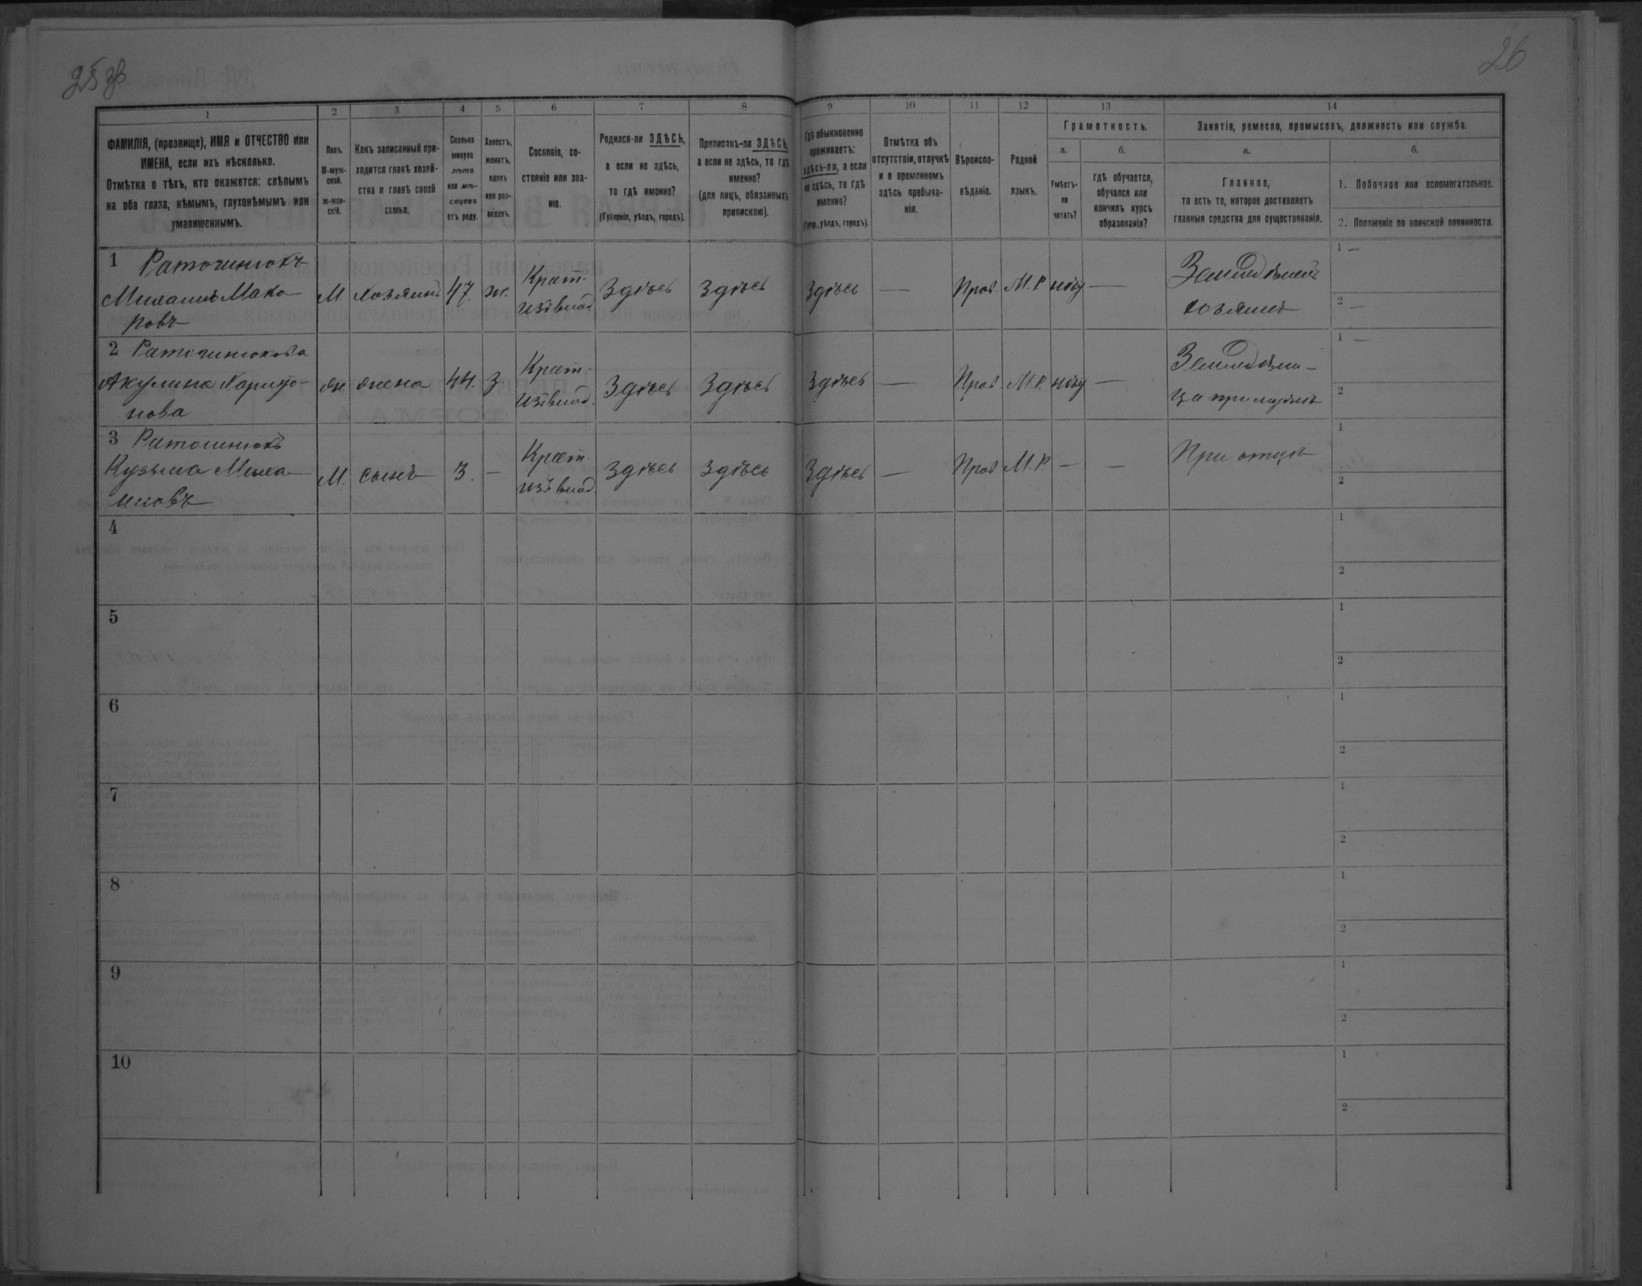 25 об
26
1
2
3
4
5
6
7
8
9
10
11
12
13
14
ФАМИЛІЯ, (прозвище), ИМЯ и ОТЧЕСТВО или
ИМЕНА, если ихъ нѣсколько.
Отмѣтка о тѣхъ, кто окажется: слѣпымъ
на оба глаза, нѣмымъ, глухонѣмымъ или
умалишеннымъ.
Полъ.
М-муж-
ской.
Ж-жен-
скій.
Какъ записанный при-
ходится главѣ хозяй-
ства и главѣ своей
семьи.
Сколько
минуло
лѣтъ
или мѣ-
сяцевъ
отъ роду.
Холостъ,
женатъ,
вдовъ
или раз-
веденъ.
Сословіе, со-
стояніе или зва-
ніе.
Родился-ли ЗДѢСЬ,
а если не здѣсь,
то гдѣ именно?
(Губернія, уѣздъ, городъ).
Приписанъ-ли ЗДѢСЬ,
а если не здѣсь, то гдѣ
именно?
(для лицъ, обязанныхъ
припискою).
Гдѣ обыкновенно
проживаетъ:
здѣсь-ли, а если
не здѣсь, то гдѣ
именно?
(Губ., уѣздъ, городъ).
Отмѣтка объ
отсутствіи, отлучкѣ
и о временномъ
здѣсь пребыва-
ніи.
Вѣроиспо-
вѣданіе.
Родной
языкъ.
Грамотность.
а.
Умѣетъ-
ли
читать?
б.
гдѣ обучается,
обучался или
кончилъ курсъ
образованія?
Занятіе, ремесло, промыселъ, должность или служба.
а.
Главное,
то есть то, которое доставляетъ
главныя средства для существованія.
б.
1. Побочное или вспомогательное.
2. Положеніе по воинской повинности.
1
Михаилъ Мака-
ровъ
М хозяинъ 47. ж. Крест. Здѣсь Здѣсь Здѣсь — Прав М.Р. нѣту —
хозяинъ
1 —
2 —
2
Акулина Харито-
нова
жена 44. З. Крест. Здѣсь Здѣсь Здѣсь — Прав М.Р. нѣту —
ца при мужѣ
1 —
2
3
Кузьма Миха-
иловъ
М. сынъ 3. — Крест. Здѣсь Здѣсь Здѣсь — Прав М.Р. — —
При отцѣ
1
2
4
1
2
5
1
2
6
1
2
7
1
2
8
1
2
9
1
2
10
1
2